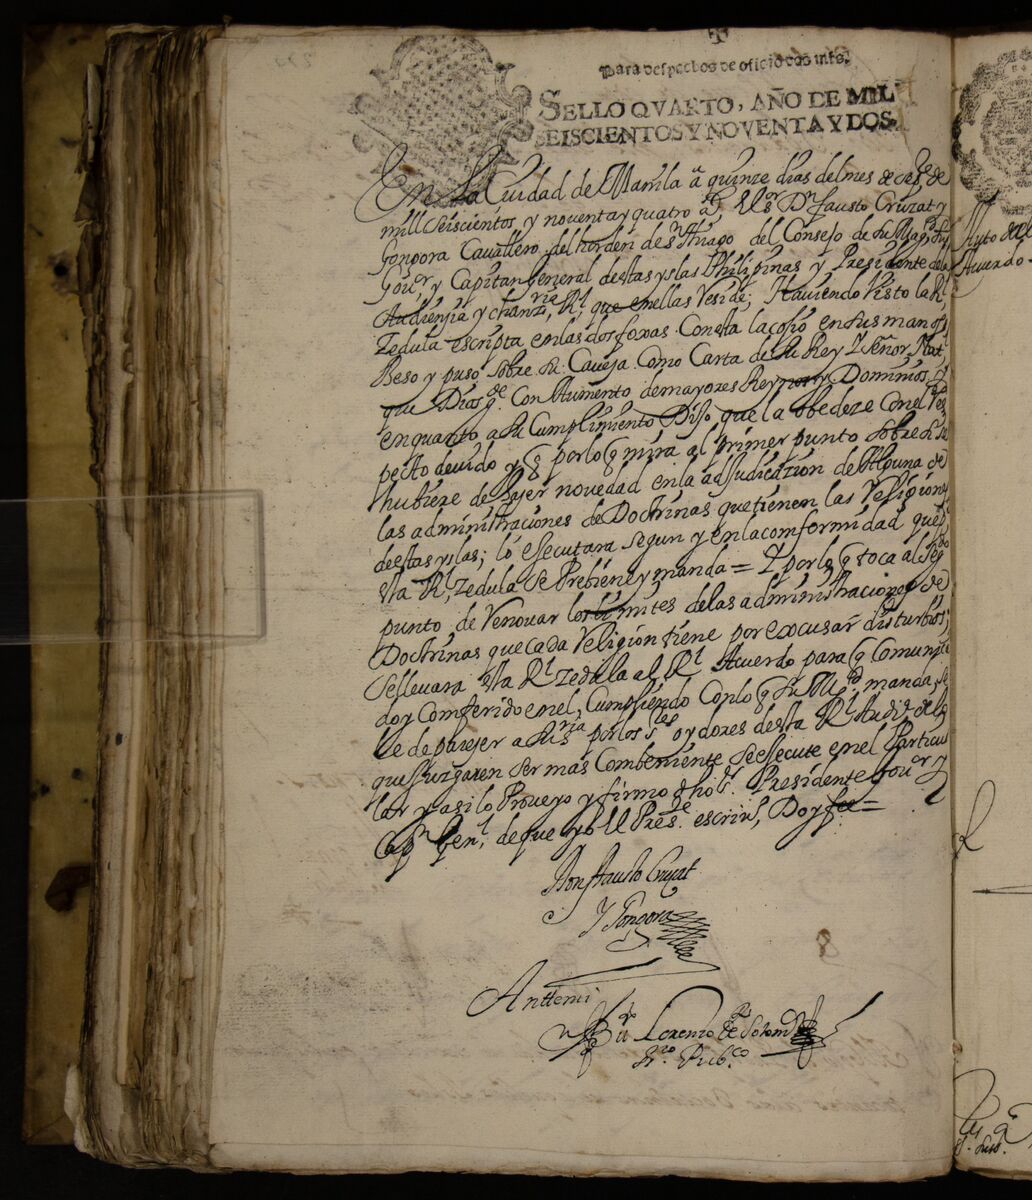 Para despachos de oficio dos mrs.
SELLO QVARTO, AÑO DE MIL
SEISCIENTOS Y NOVENTA Y DOS.
En La Ciudad de Manila â quinze dias del mes de de
mill seiscientos y noventa y quatro as. el Sr. Dn fausto Cruzat y
Gongora Cavallero del horden de sn thiago del Consejo de su Magd. su
Gour, y Capitan General destas yslas Philipinas y Presidente de la
Audienzia y chanzria, Rl que en ellas Reside; Haviendo Visto la Rl
Zedula escripta en las dos foxas Con esta la cojio en sus manos,
Beso y puso sobre su Caveja Como Carta de su Rey Y Señor Natl,
que Dios gde. Con Aumento de mayores Reynos y Dominios, y
en quanto a su Cumplimiento Dijo, que la obedeze con el Res
pecto devido y q por lo q mira al primer punto sobre si se
hubiere de hazer novedad en la adjudicazion de Alguna de
las administraciones de Doctrinas que tienen las Religiones
destas yslas; lo esecutara segun y en la comformidad que pr
esta Rl, Zedula se Prebiene y manda = Y por lo q toca al segdo
punto de Renovar los limites de las administraciones de
Doctrinas que cada Religion tiene por excusar disturbios;
se llevara esta Rl Zedula al Rl Acuerdo para q Comunica
do y Comferido en el, Cumpliendo Con lo q su Md manda, se
le de parejer a su sria por los ses oydores desta Rl Audia de lo
que Juzgaren ser mas Combeniente se esecute en el Particu
lar y asi lo Proveyo y firmo dho sr. Presidente Gour y
Capn Genl, de que yo el Preste. escrino, Doy fee =
Don fausto Cruzat
Y Gongora
Anttemi
Lorenzo de
Pubco
8
Auto
Acuerdo